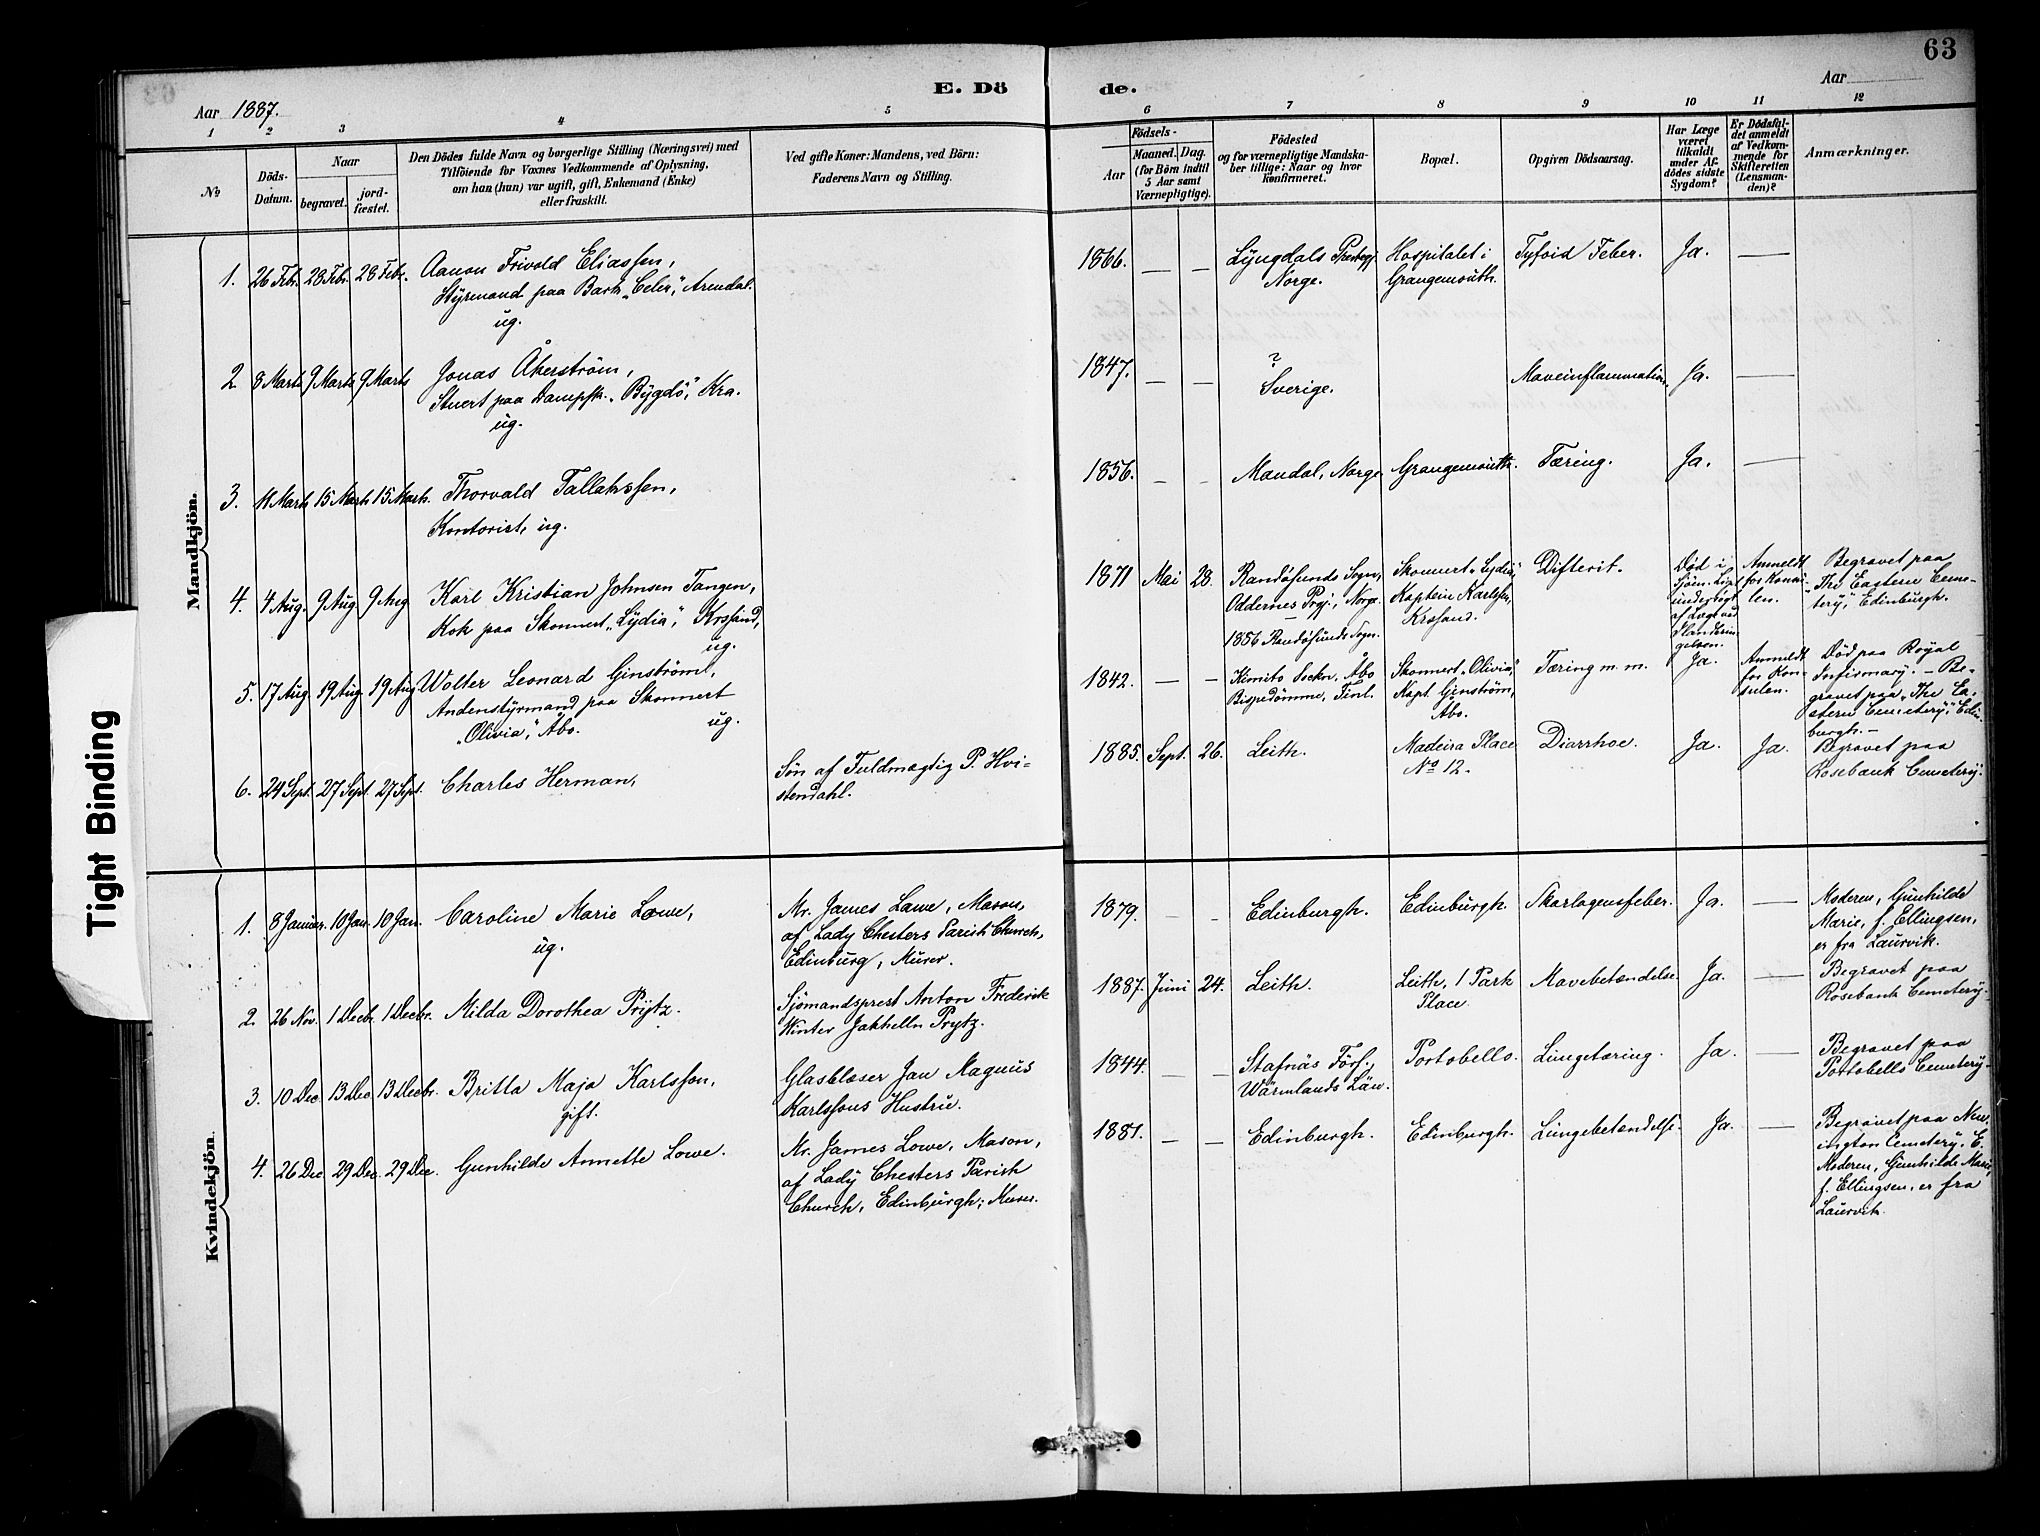 63
E. Döde.
Aar 1887.
Aar
1 2 3 4 5 6 7 8 9 10 11 12
No
Döds-Datum.
Naar
begravet.
jord-fæstet.
Den Dödes fulde Navn og borgerlige Stilling (Næringsvei) med
Tilföiende for Voxnes Vedkommende af Oplysning,
om han (hun) var ugift, gift, Enkemand (Enke)
eller fraskilt.
Ved gifte Koner: Mandens, ved Börn:
Faderens Navn og Stilling.
Födsels-
Aar
Maaned. Dag.
(for Børn indtil
5 Aar samt
Værnepligtige).
Födested
og for værnepligtige Mandskaber tillige: Naar og hvor
konfirmeret.
Bopæl.
Opgiven Dödsaarsag.
Har Læge
været
tilkaldt
under Afdödes sidste
Sygdom?
Er Dödsfaldet anmeldt
af Vedkommende for
Skifteretten
(Lensmanden)?
Anmærkninger.
Mandkjön.
1. 26 Febr. 28 Febr. 28 Febr. Aanon Frivold Eliassen,
Styrmand paa Bark „Celer", Arendal.
ug.
1866. — — Lyngdals Prestegj.
Norge.
Hospitalet i
Grangemouth.
Tyfoid Feber. Ja. —
2. 8 Marts 9 Marts 9 Marts Jonas Åkerström,
Stuert paa Dampsk. „Bygdö", Kra.
ug.
1847. — — ?
Sverige.
Maveinflammation. Ja. —
3. 11 Marts 15 Marts 15 Marts. Thorvald Tallaksen,
Kontorist, ug.
1856. — — Mandal, Norge. Grangemouth. Tæring. Ja. —
4. 4 Aug. 9 Aug. 9 Aug. Karl Kristian Johnsen Tangen,
Kok paa Skonnert „Lydia", Krsand,
ug.
1871 Mai 28. Randösunds Sogn,
Oddernes Prgj., Norge.
1856 Randösunds Sogn.
Skonnert „Lydia",
Kaptein Karlsen,
Krsand.
Difterit.
Død i
Sjöen.
undersögt
af Læge ved
Ilandbringelsen.
Anmeldt
for Konsulen.
Begravet paa
„The Eastern Cemetery", Edinburgh.
5. 17 Aug. 19 Aug. 19 Aug. Wolter Leonard Ginström,
Andenstyrmand paa Skonnert
„Olivia", Åbo. ug.
1842. — — Kimito Sockn, Åbo
Bispedömme, Finl.
Skonnert „Olivia",
Kapt. Ginström,
Åbo.
Tæring m. m. Ja.
Anmeldt
for Konsulen.
Död paa Royal
Infirmary. — Begravet paa „The Eastern Cemetery", Edinburgh. —
6. 24 Sept. 27 Sept. 27 Sept. Charles Herman,
Sön af Fuldmægtig P. Hvistendahl.
1885. Sept. 26. Leith.
Madeira Place
No 12.
Diarrhoe. Ja. Ja.
Begravet paa
Rosebank Cemetery.
Kvindekjön.
1. 8 Januar. 10 Jan. 10 Jan. Caroline Marie Lowe,
ug.
Mr. James Lowe, Mason,
af Lady Chesters Parish Church,
Edinburg, Murer.
1879. — — Edinburgh. Edinburgh. Skarlagensfeber. Ja. —
Moderen, Gunhilde
Marie, f. Ellingsen,
er fra Laurvik.
2. 26 Nov. 1 Decbr. 1 Decbr. Milda Dorothea Prytz.
Sjömandsprest Anton Frederik
Winter Jakhelln Prytz.
1887. Juni 24. Leith.
Leith, 1 Park
Place.
Mavebetændelse. Ja. —
Begravet paa
Rosebank Cemetery.
3. 10 Dec. 13 Dec. 13 Decbr. Britta Maja Karlsson,
gift.
Glasblæser Jan Magnus
Karlssons Hustru.
1844. — — Stafnäs Förs.,
Wärmlands Län.
Portobello. Lungetæring. Ja. —
Begravet paa
Portobello Cemetery.
4. 26 Dec. 29 Dec. 29 Dec. Gunhilde Annette Lowe.
Mr. James Lowe, Mason,
af Lady Chesters Parish
Church, Edinburgh; Murer.
1881. — — Edinburgh. Edinburgh. Lungebetændelse. Ja. —
Begravet paa Newington Cemetery. E.
Moderen, Gunhilde Marie,
f. Ellingsen, er fra
Laurvik.
Tight Binding